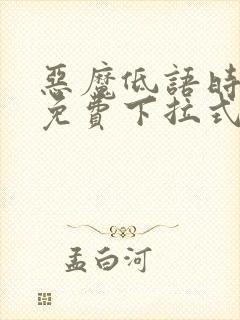 惡魔低語時
免費下拉式
孟白河